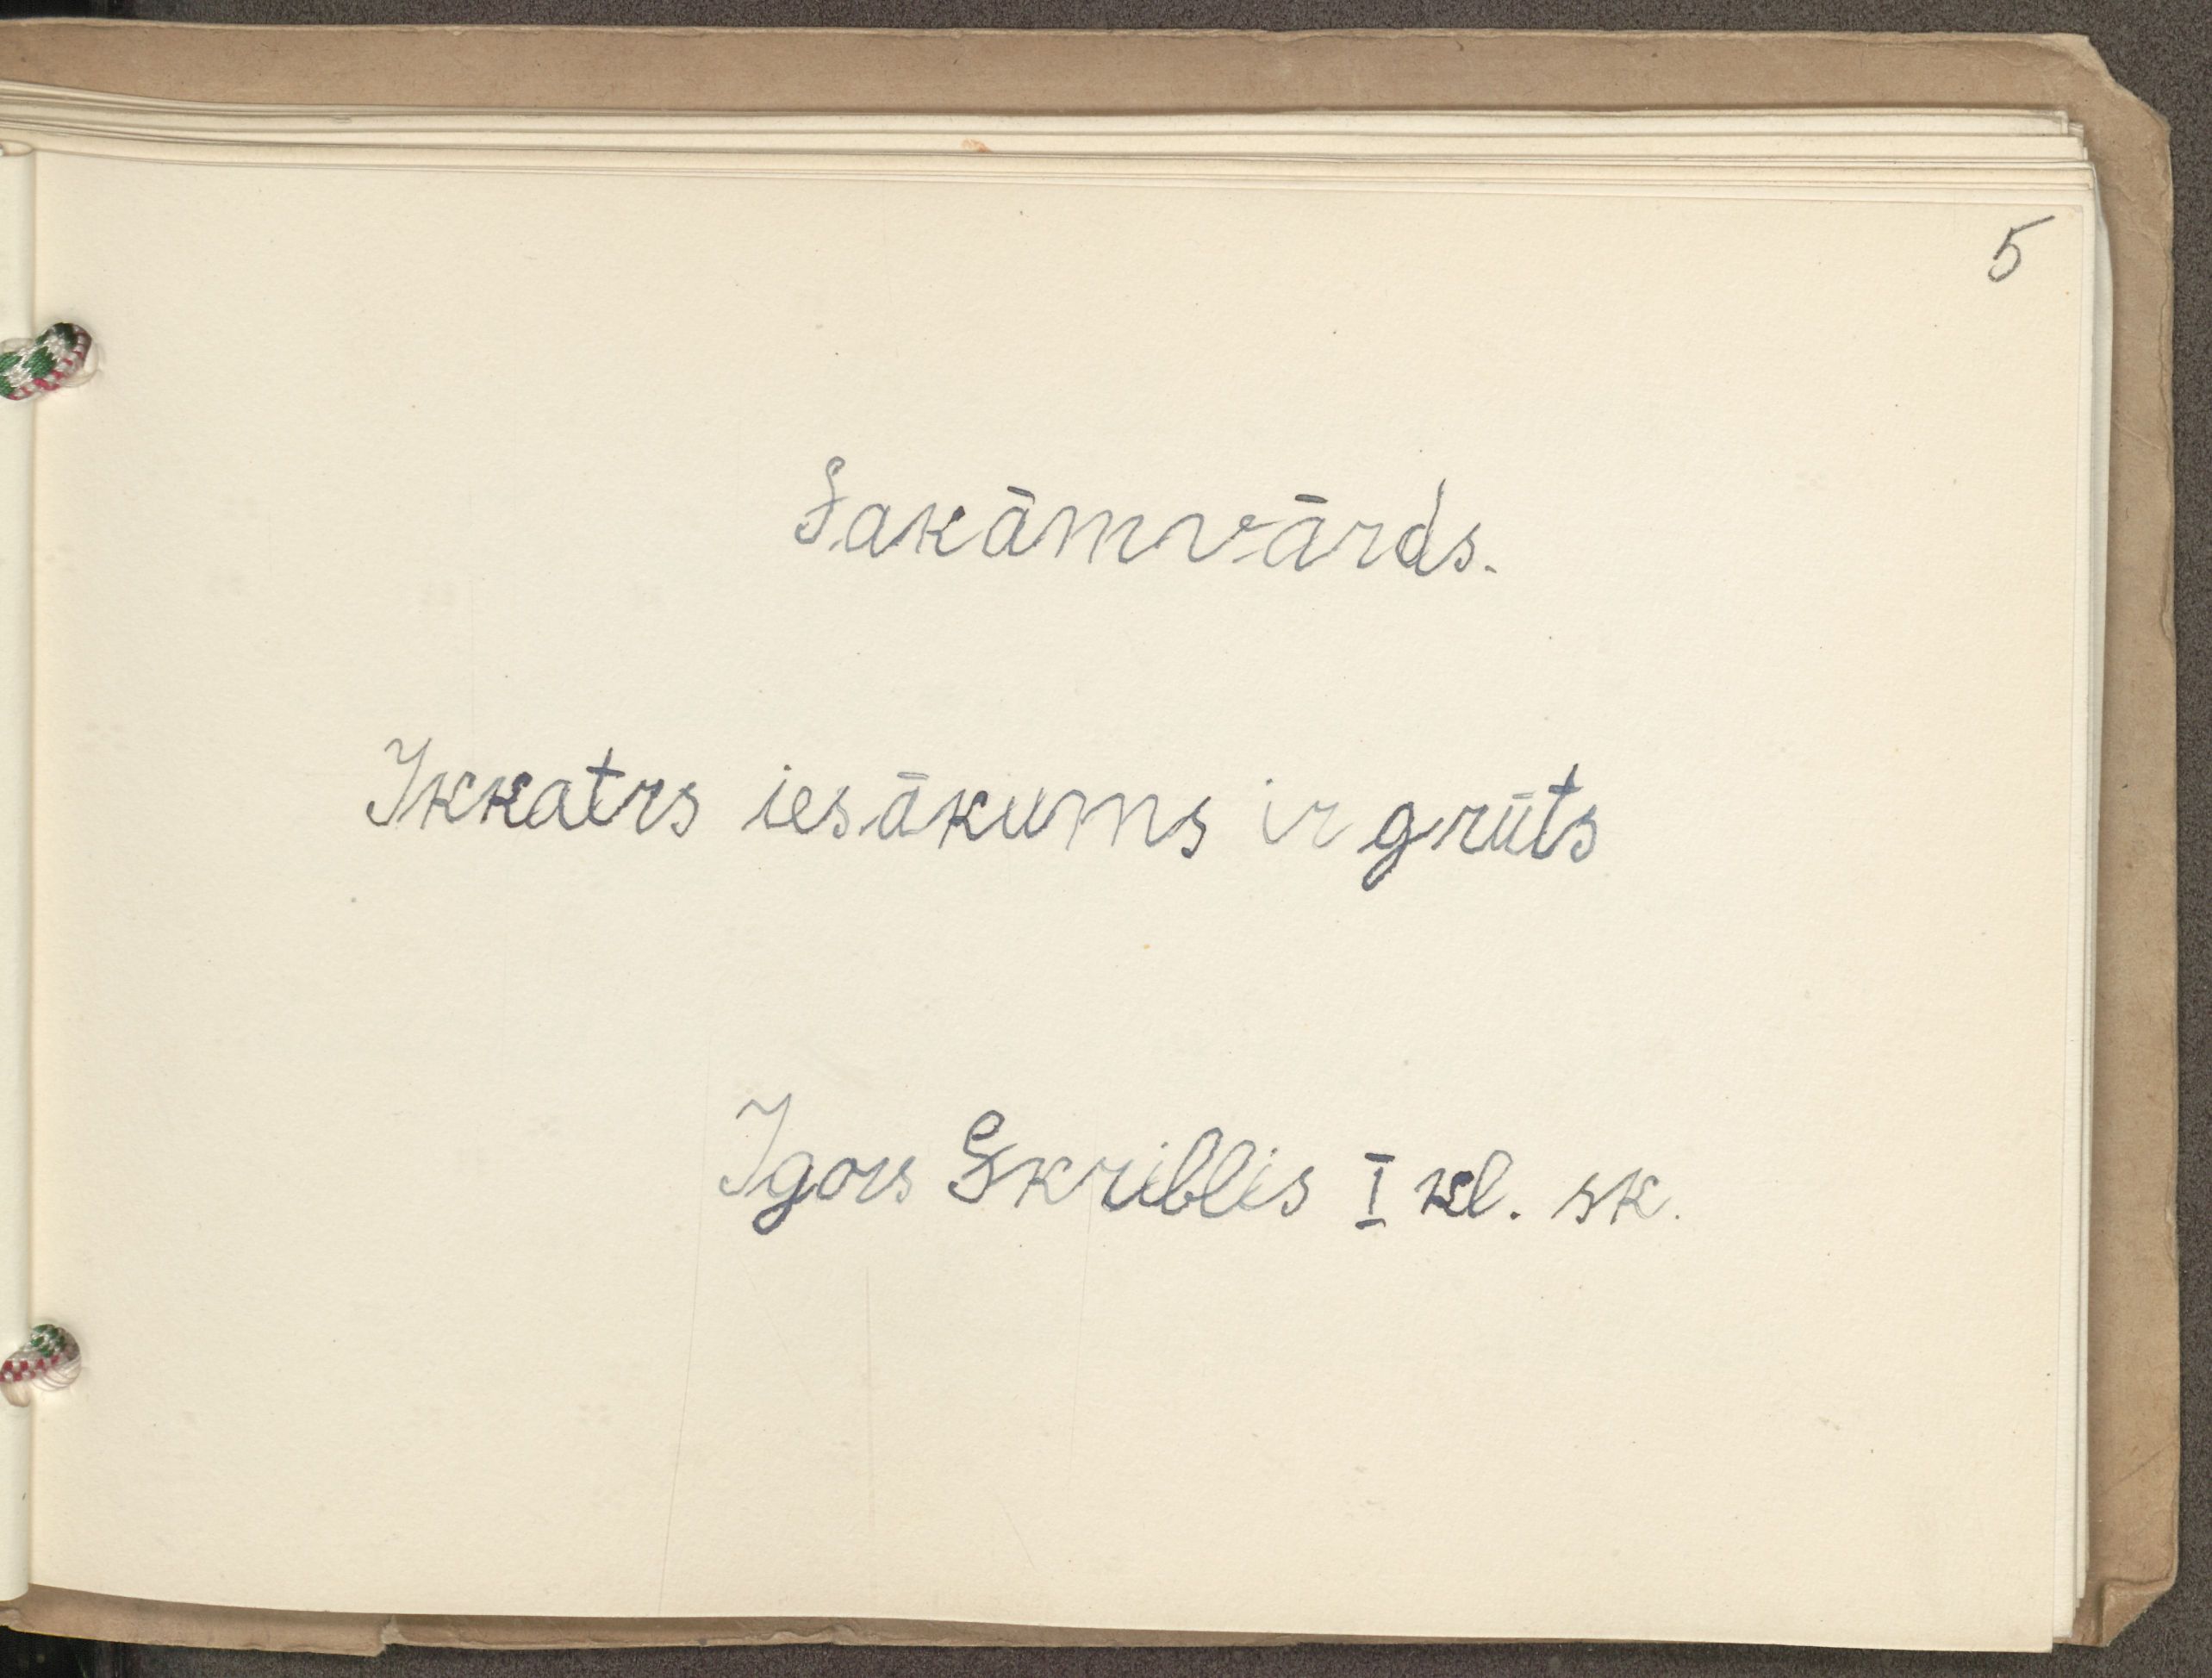 5
Sakāmvārds.
Ikkatrs iesākums ir grūts
Igors Skriblis I kl. sk.